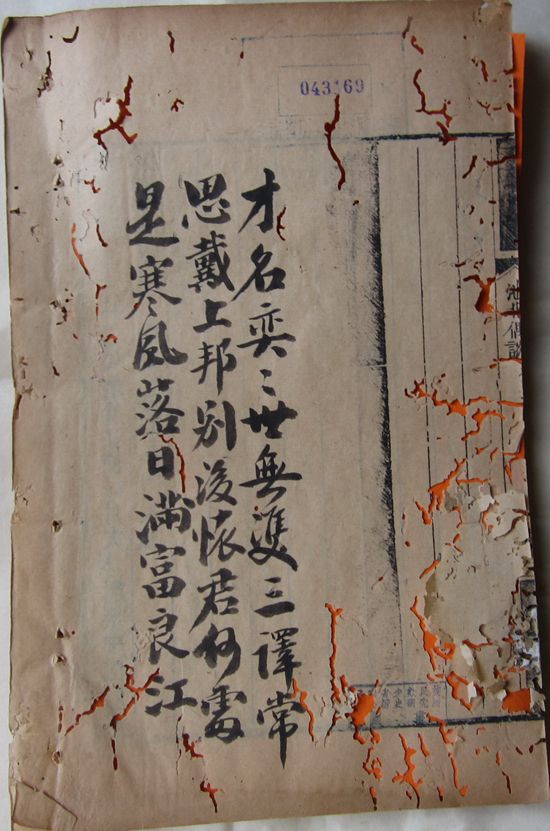 043169
才名奕〻世無雙三譯常
思戴上邦別後懷君何處
是寒風落日滿富良江
池北偶談